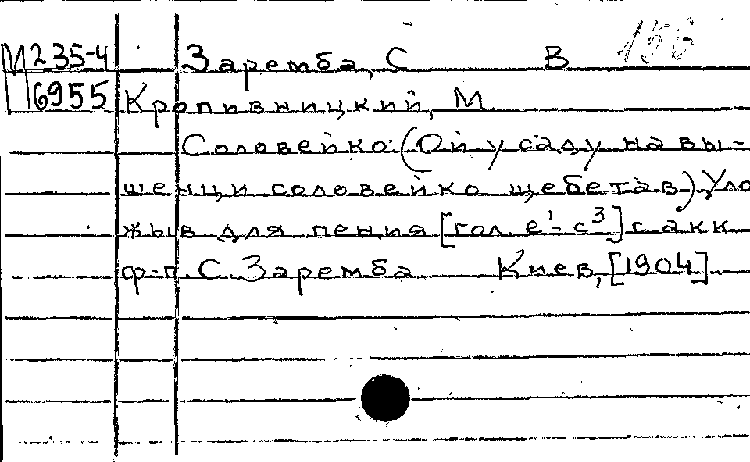 М 235-4 Заремба, С В 156
6955 Кропивницкий, М.
Соловейко: (Ой у саду на вы-
шенци соловейко щебетав). Уло
жыв для пения [гол. е¹-с³] с акк
ф-п. С. Заремба Киев, [1904]